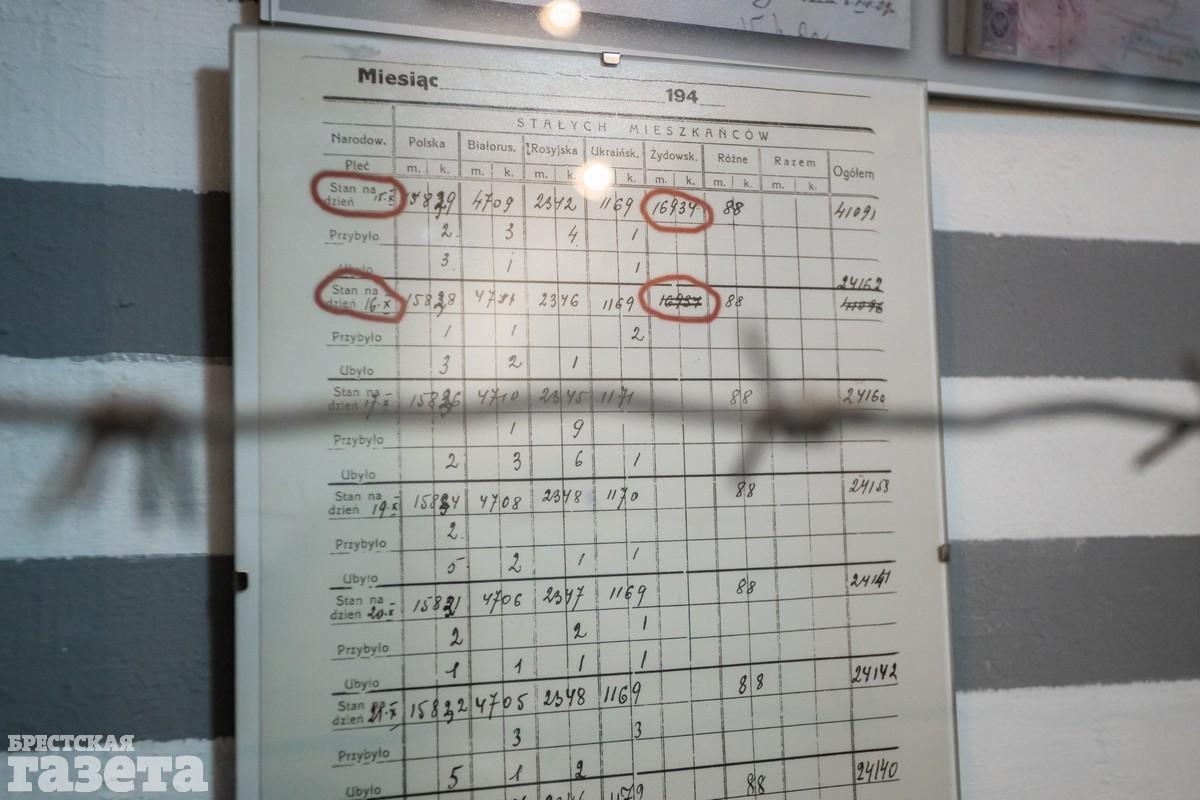 Miesiąc 194
STAŁYCH MIESZKAŃCÓW
Narodow. Polska Białorus. Rosyjska Ukraińsk. Żydowsk. Różne Razem Ogółem
Płeć m. k. m. k. m. k. k. m. k. m. k. m. k.
Stan na dzień 15-X 15829 4709 2342 1169 16934 88 41091
Przybyło 2 3 4 1
Ubyło 3 1 1
24162
Stan na dzień 16-X 15828 2346 1169 88
Przybyło 1 1 2
Ubyło 3 2 1
Stan na dzień 17-X 15826 4710 2345 1171 88 24160
Przybyło 1 9
Ubyło 2 3 6 1
Stan na dzień 19-X 15824 4708 2348 1170 88 24153
Przybyło 2
Ubyło 5 2 1 1
Stan na dzień 20-X 15821 4706 2347 1169 88 24141
Przybyło 2 2 1
Ubyło 1 1 1 1
Stan na dzień 21-X 15822 4705 2348 1169 88 24142
Przybyło 3 3
Ubyło 5 1 2
88 24140
БРЕСТСКАЯ
газета